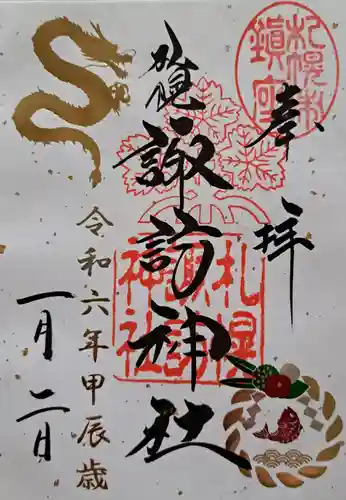 札幌
鎮座
奉拝
札幌
諏訪
神社
札幌諏訪神社
令和六年甲辰歳
一月二日